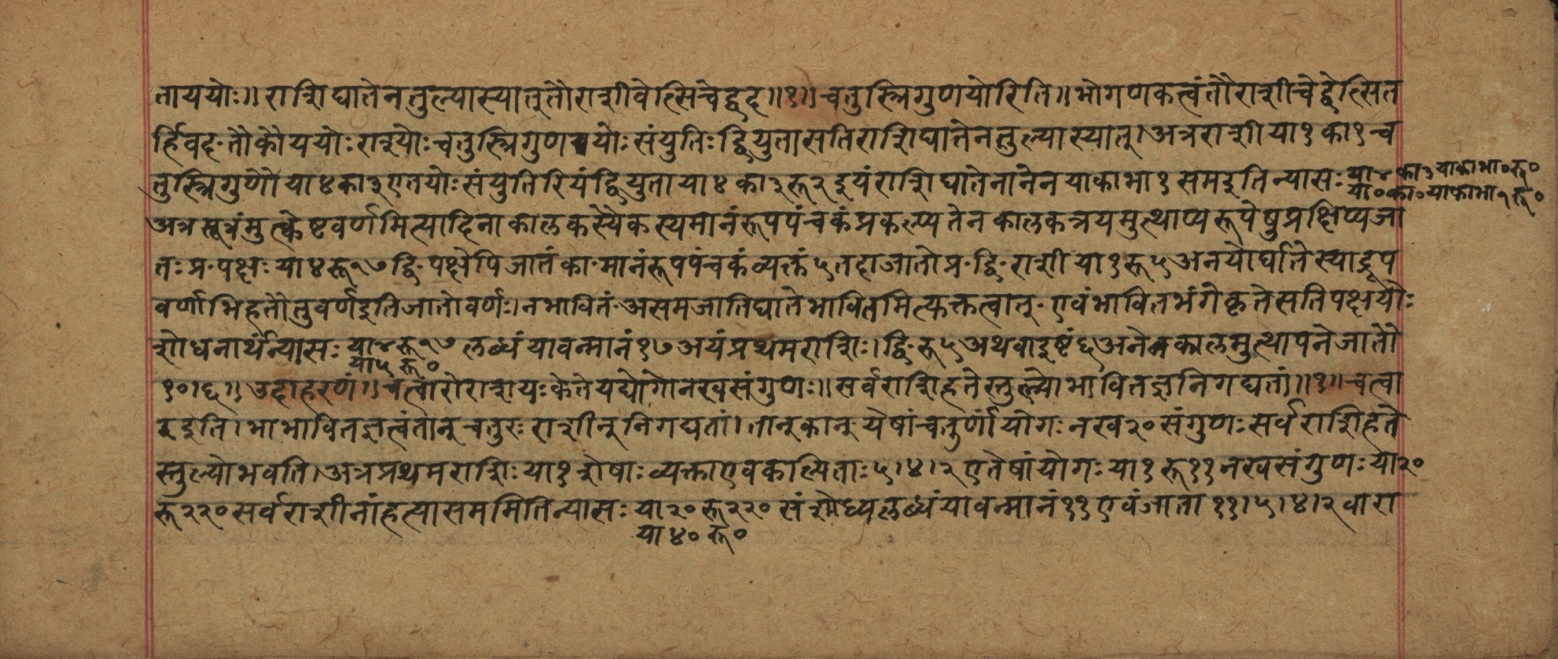 ताययोः॥ राशिघातेनतुल्यास्यात्तौराशीवेत्सिचेद्वद॥१॥ चतुस्त्रिगुणयोरिति॥ भोगणकत्वंतौराशीचेद्वेत्सित
र्हिवद·तौकौययोः राश्योः चतुस्त्रिगुणयोः संयुतिः द्वियुतासतिराशिघातेनतुल्यास्यात्। अत्रराशीया१ का१ च
तुस्त्रिगुणौ या४ का३ एतयोः संयुतिरियंद्वियुता या४ का३ रू२ इयंराशिघातेनानेन याकाभा१ समइतिन्यासः या४ का३ याकाभा० रू०
या० का० याकाभा१ रू०
अत्रसूत्रंमुत्केष्टवर्णमित्यादिनाकालकस्यैकस्यमानंरूपपंचकंप्रकल्प्यतेनकालकत्रयमुत्थाप्यरूपेषुप्रक्षिप्यजा
तः प्र·पक्षः या४ रू१७ द्वि·पक्षेपिजातंका·मानंरूपपंचकंव्यक्तं५तदाजातौप्र·द्वि·राशीया१ रू५ अनयोर्घातेस्याद्रूप
वर्णाभिहतौतुवर्णइतिजातोवर्णः। नभावितं·असमजातिघातेभावितमित्यक्तत्वात्·एवंभावितभंगेकृतेसतिपक्षयोः
शोधनार्थंन्यासः या४ रू१७ लब्धंयावन्मानं१७अयंप्रथमराशिः। द्वि·रू५अथवाइष्टं६अनेनकालमुत्थापनेजातौ
या५ रू०
१०।६॥ उदाहरणं॥ चत्वारोराशयः केतेयद्योगोनखसंगुणः॥ सर्वराशिहतेस्तुल्योभावितज्ञनिगद्यतां॥१॥ चत्वा
रइति। भोभावितज्ञत्वंतान्चतुरः राशीन्निगद्यतां। तान्कान्येषांचतुर्णांयोगः नख२०संगुणः सर्वराशिहते
स्तुल्योभवति। अत्रप्रथमराशिः या१ शेषाः व्यक्ताएवकल्पिताः ५।४।२ एतेषांयोगः या१ रू११ नखसंगुणः या२०
रू२२० सर्वराशीनांहत्यासममितिन्यासः या२० रू२२० संशोध्यलब्धंयावन्मानं११एवंजाता ११।५।४।२वारा
या४० रू०